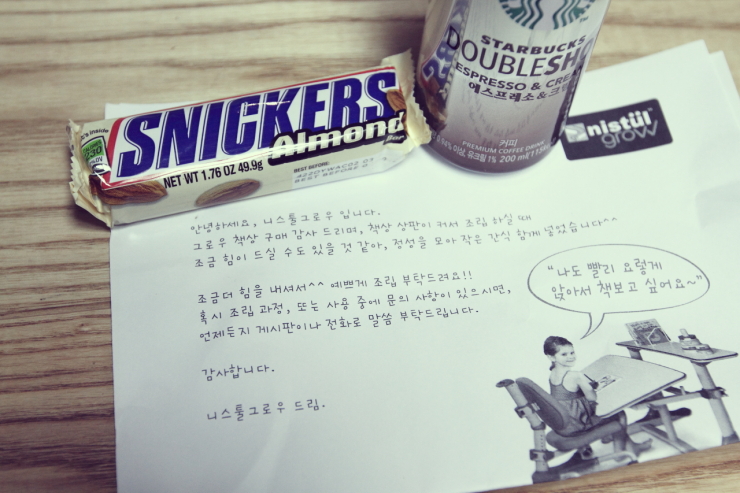 STARBUCKS
DOUBLESH
ESPRESSO & CREA
에스프레소&크림
커피
PREMIUM COFFEE DRINK
200 ml
SNICKERS
Almond
NET WT 1.76 OZ 49.9g
BEST BEFORE
nistül
grow
안녕하세요, 니스툴그로우 입니다.
그로우 책상 구매 감사 드리며, 책상 상판이 커서 조립 하실 때
조금 힘이 드실 수도 있을 것 같아, 정성을 모아 작은 간식 함께 넣었습니다^^
조금더 힘을 내셔서^^ 예쁘게 조립 부탁드려요!!
혹시 조립 과정, 또는 사용 중에 문의 사항이 있으시면,
언제든지 게시판이나 전화로 말씀 부탁드립니다.
감사합니다.
니스툴그로우 드림.
"나도 빨리 요렇게
앉아서 책보고 싶어요~"